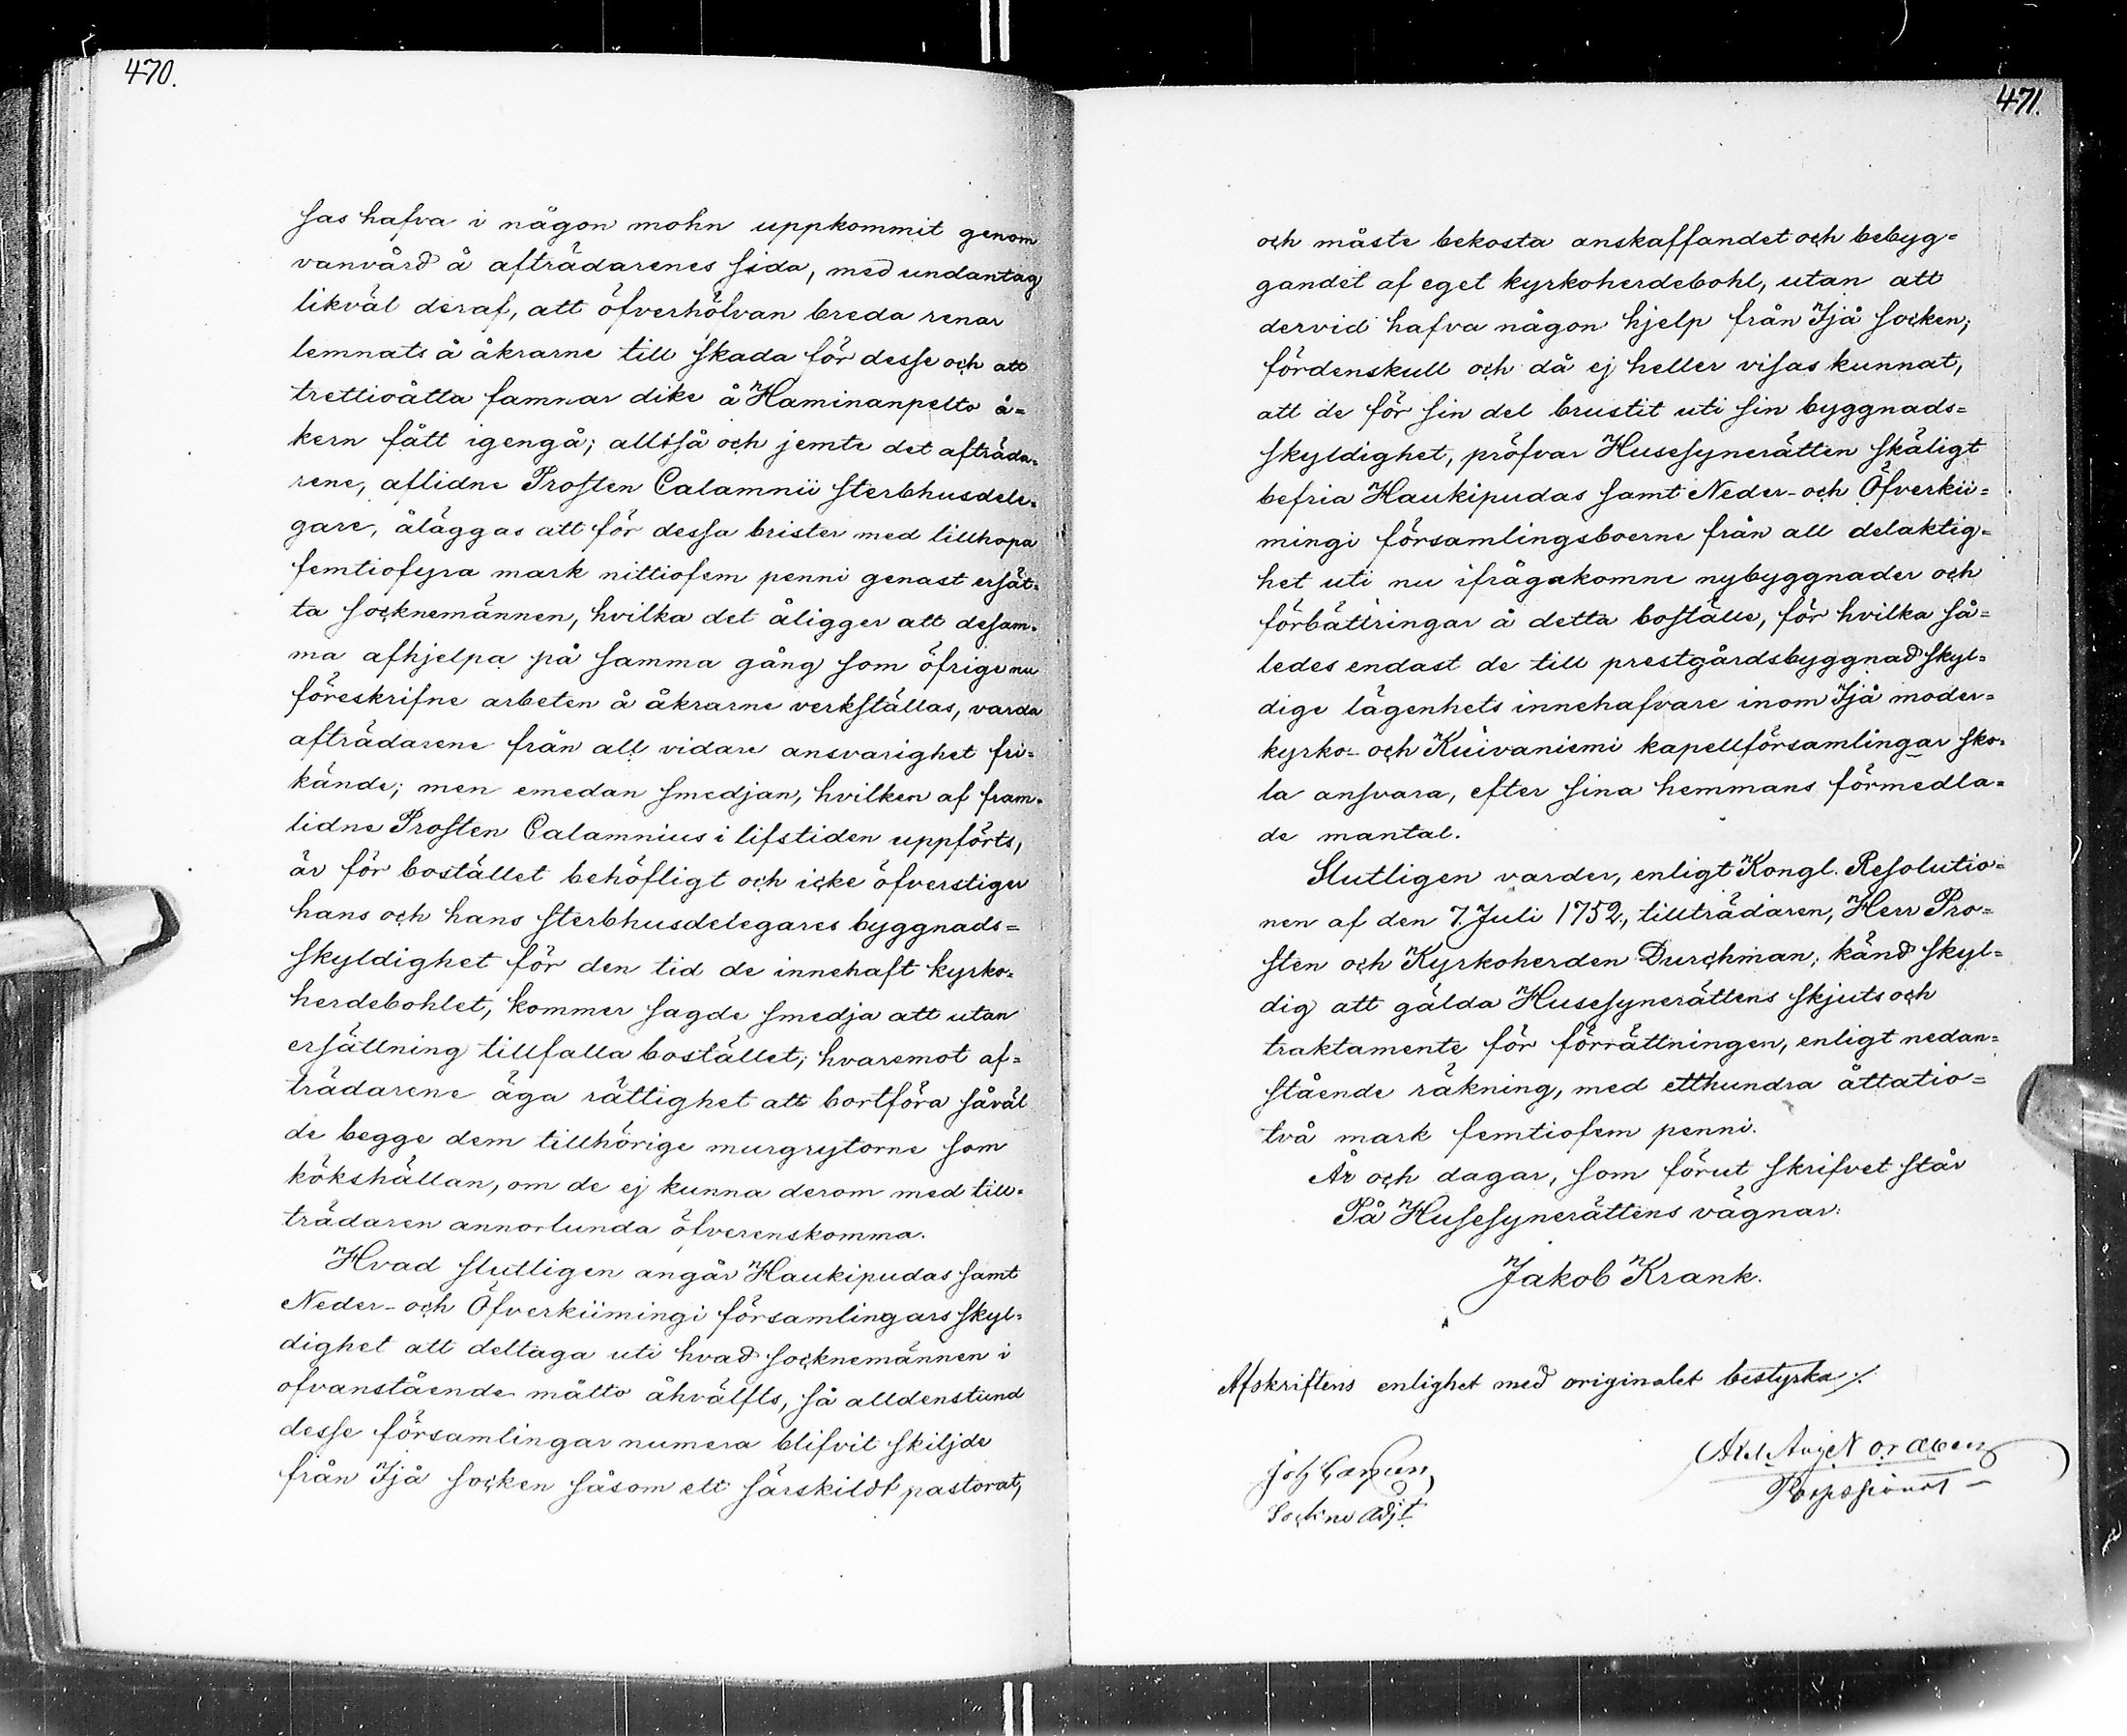 470.
sas hafva i någon mohn uppkommit genom
vanvård å afträdarenes sida, med undantag
likväl deraf, att öfverhölvan breda renar
lemnats å åkrarne till skada för desse och att
trettioåtta famnar dike å Haminanpelto å=
kern fått igengå; alltså och jemte det afträda=
rene, aflidne Prosten Calamnii sterbhusdele=
gare, åläggas att för dessa brister med tillhopa
femtiofyra mark nittiofem penni genast ersät=
ta socknemännen, hvilka det åligger att desam=
ma afhjelpa på samma gång som öfrige nu
föreskrifne arbeten å åkrarne verkställas, varda
afträdarene från all vidare ansvarighet fri=
kände; men emedan smedjan, hvilken af fram=
lidne Prosten Calamnius i lifstiden uppförts,
är för bostället behöfligt och icke öfverstiger
hans och hans sterbhusdelegares byggnads=
skyldighet för den tid de innehaft kyrko=
herdebohlet, kommer sagde smedja att utan
ersättning tillfalla bostället; hvaremot af=
trädarene äga rättighet att bortföra såväl
de begge dem tillhörige murgrytorne som
kökshällan, om de ej kunna derom med till=
trädaren annorlunda öfverenskomma.
Hvad slutligen angår Haukipudas samt
Neder- och Öfverkiimingi församlingars skyl=
dighet att deltaga uti hvad socknemännen i
ofvanstående måtto åhvälfts, så alldenstund
desse församlingar numera blifvit skiljde
från Ijå socken såsom ett särskildt pastorat,
471.
och måste bekosta anskaffandet och bebyg=
gandet af eget kyrkoherdebohl, utan att
dervid hafva någon hjelp från Ijå socken;
fördenskull och då ej heller visas kunnat,
att de för sin del brustit uti sin byggnads=
skyldighet, pröfvar Husesynerätten skäligt
befria Haukipudas samt Neder- och Öfverkii=
mingi församlingsboerne från all delaktig=
het uti nu ifrågakomne nybyggnader och
förbättringar å detta boställe, för hvilka så=
ledes endast de till prestgårdsbyggnad skyl=
dige lägenhets innehafvare inom Ijå moder=
kyrko- och Kuivaniemi kapellförsamlingar sko=
la ansvara, efter sina hemmans förmedla=
de mantal.
Slutligen varder, enligt Kongl. Resolutio=
nen af den 7. Juli 1752, tillträdaren, Herr Pro=
sten och Kyrkoherden Durchman, känd skyl=
dig att gälda Husesynerättens skjuts och
traktamente för förrättningen, enligt nedan=
stående räkning, med etthundra åttatio=
två mark femtiofem penni.
År och dagar, som förut skrifvet står
På Husesynerättens vägnar:
Jakob Krank.
Afskriftens enlighet med originalet bestyrka